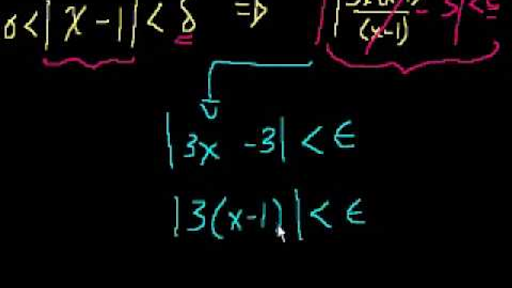 0 < |x - 1| < δ ⇒ | 3x(x-1)/(x-1) - 3| < ε
|3x - 3| < ε
|3(x-1)| < ε